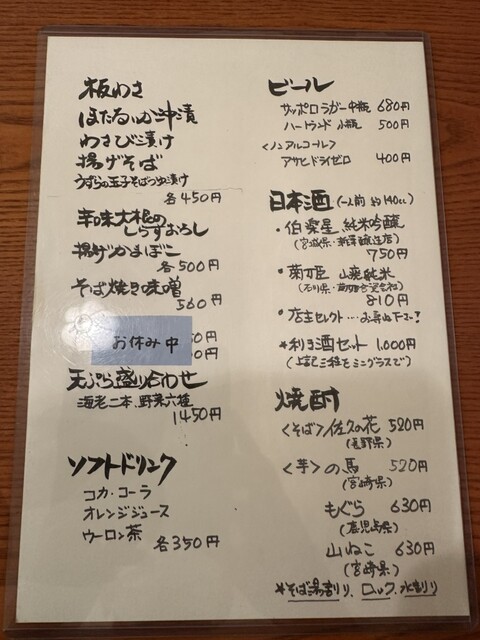 板わさ
ほたるいか沖漬
わさび漬け
揚げそば
うずらの玉子そばつゆ漬け
各450円
辛味大根の
しらすおろし
揚げかまぼこ
各500円
そば焼き味噌
560円
お休み中
50円
0円
天ぷら盛り合わせ
海老二本、野菜六種
1450円
ソフトドリンク
コカ・コーラ
オレンジジュース
ウーロン茶
各350円
ビール
サッポロラガー中瓶 680円
ハートランド 小瓶 500円
<ノンアルコール>
アサヒドライゼロ
400円
日本酒 (一人前 約140cc)
・伯楽星 純米吟醸
(宮城県・新澤醸造店)
750円
・菊姫 山廃純米
(石川県・菊姫合資会社)
810円
・店主セレクト…お尋ね下さい!
*利き酒セット 1,000円
(上記三種をミニグラスで)
焼酎
<そば>/佐久の花 520円
(長野県)
<芋>の馬 520円
(宮崎県)
もぐら 630円
(鹿児島県)
山ねこ 630円
(宮崎県)
*そば湯割り、ロック、水割り